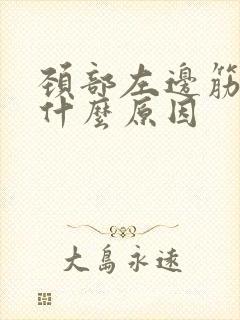 頚部左邊筋
什麼原因
大島永遠